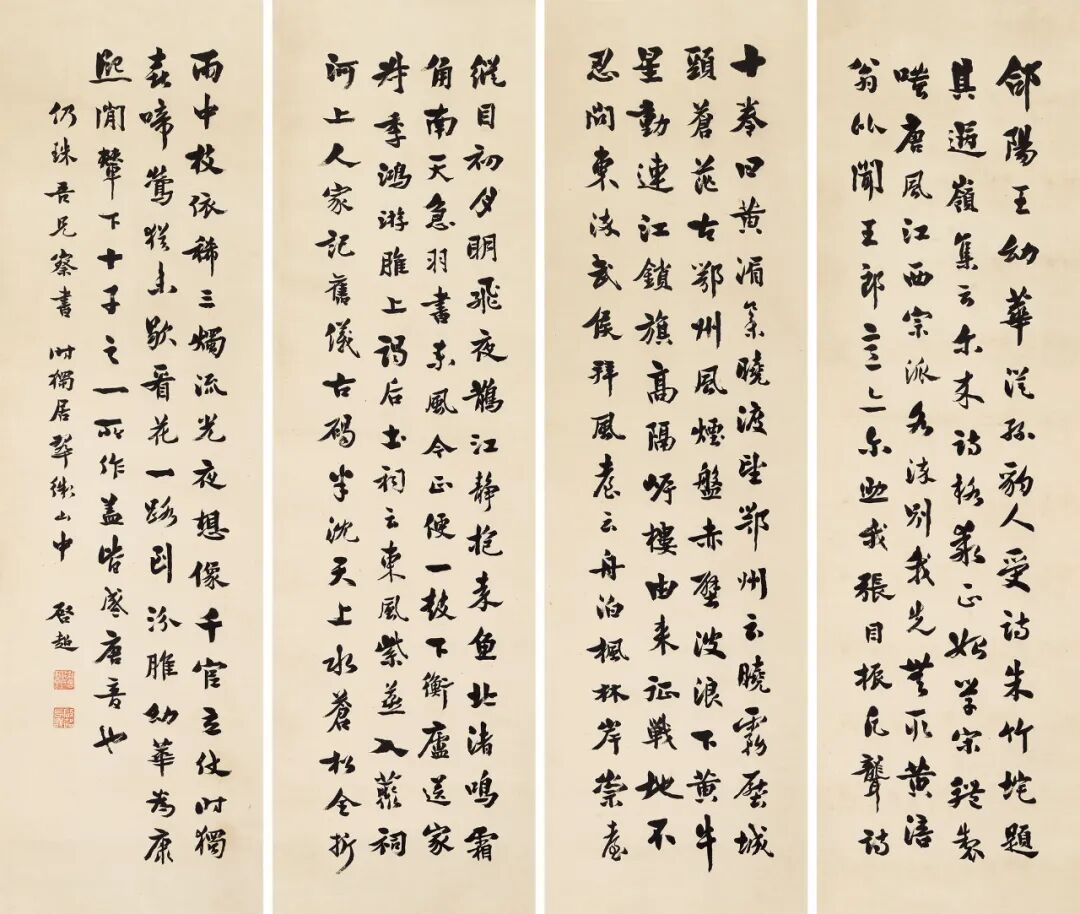 郃陽王幼華從孫豹人受詩朱竹垞題
其過嶺集云尔来詩格乖正始學宋體製
嗤唐風江西宗派各流別我先無取黃涪
翁比聞王郎言亦尔助我張目振凡聾詩
十卷曰黃湄集曉渡望鄂州云曉霧壓城
頭蒼茫古鄂州風煙盤赤壁波浪下黃牛
星動連江鎖旗高隔嶼樓由来征戰地不
忍問東流武侯拜風臺云舟泊楓林岸崇臺
縱目初月明飛夜鵲江靜抱魚北渚鳴霜
角南天急羽書東風今正便一鼓下衡廬送家
叔季鴻游脽上謁后土祠云東風紫燕入叢祠
河上人家記舊儀古碣半沈天上水蒼松全折
雨中枝依稀三燭流光夜想像千官立仗時獨
喜啼鶯猶未歇看花一路到汾脽幼華為康
熙間輦下十子之一所作蓋皆盛唐音也
仍珠吾兄察書 時獨居翠微山中 啓超